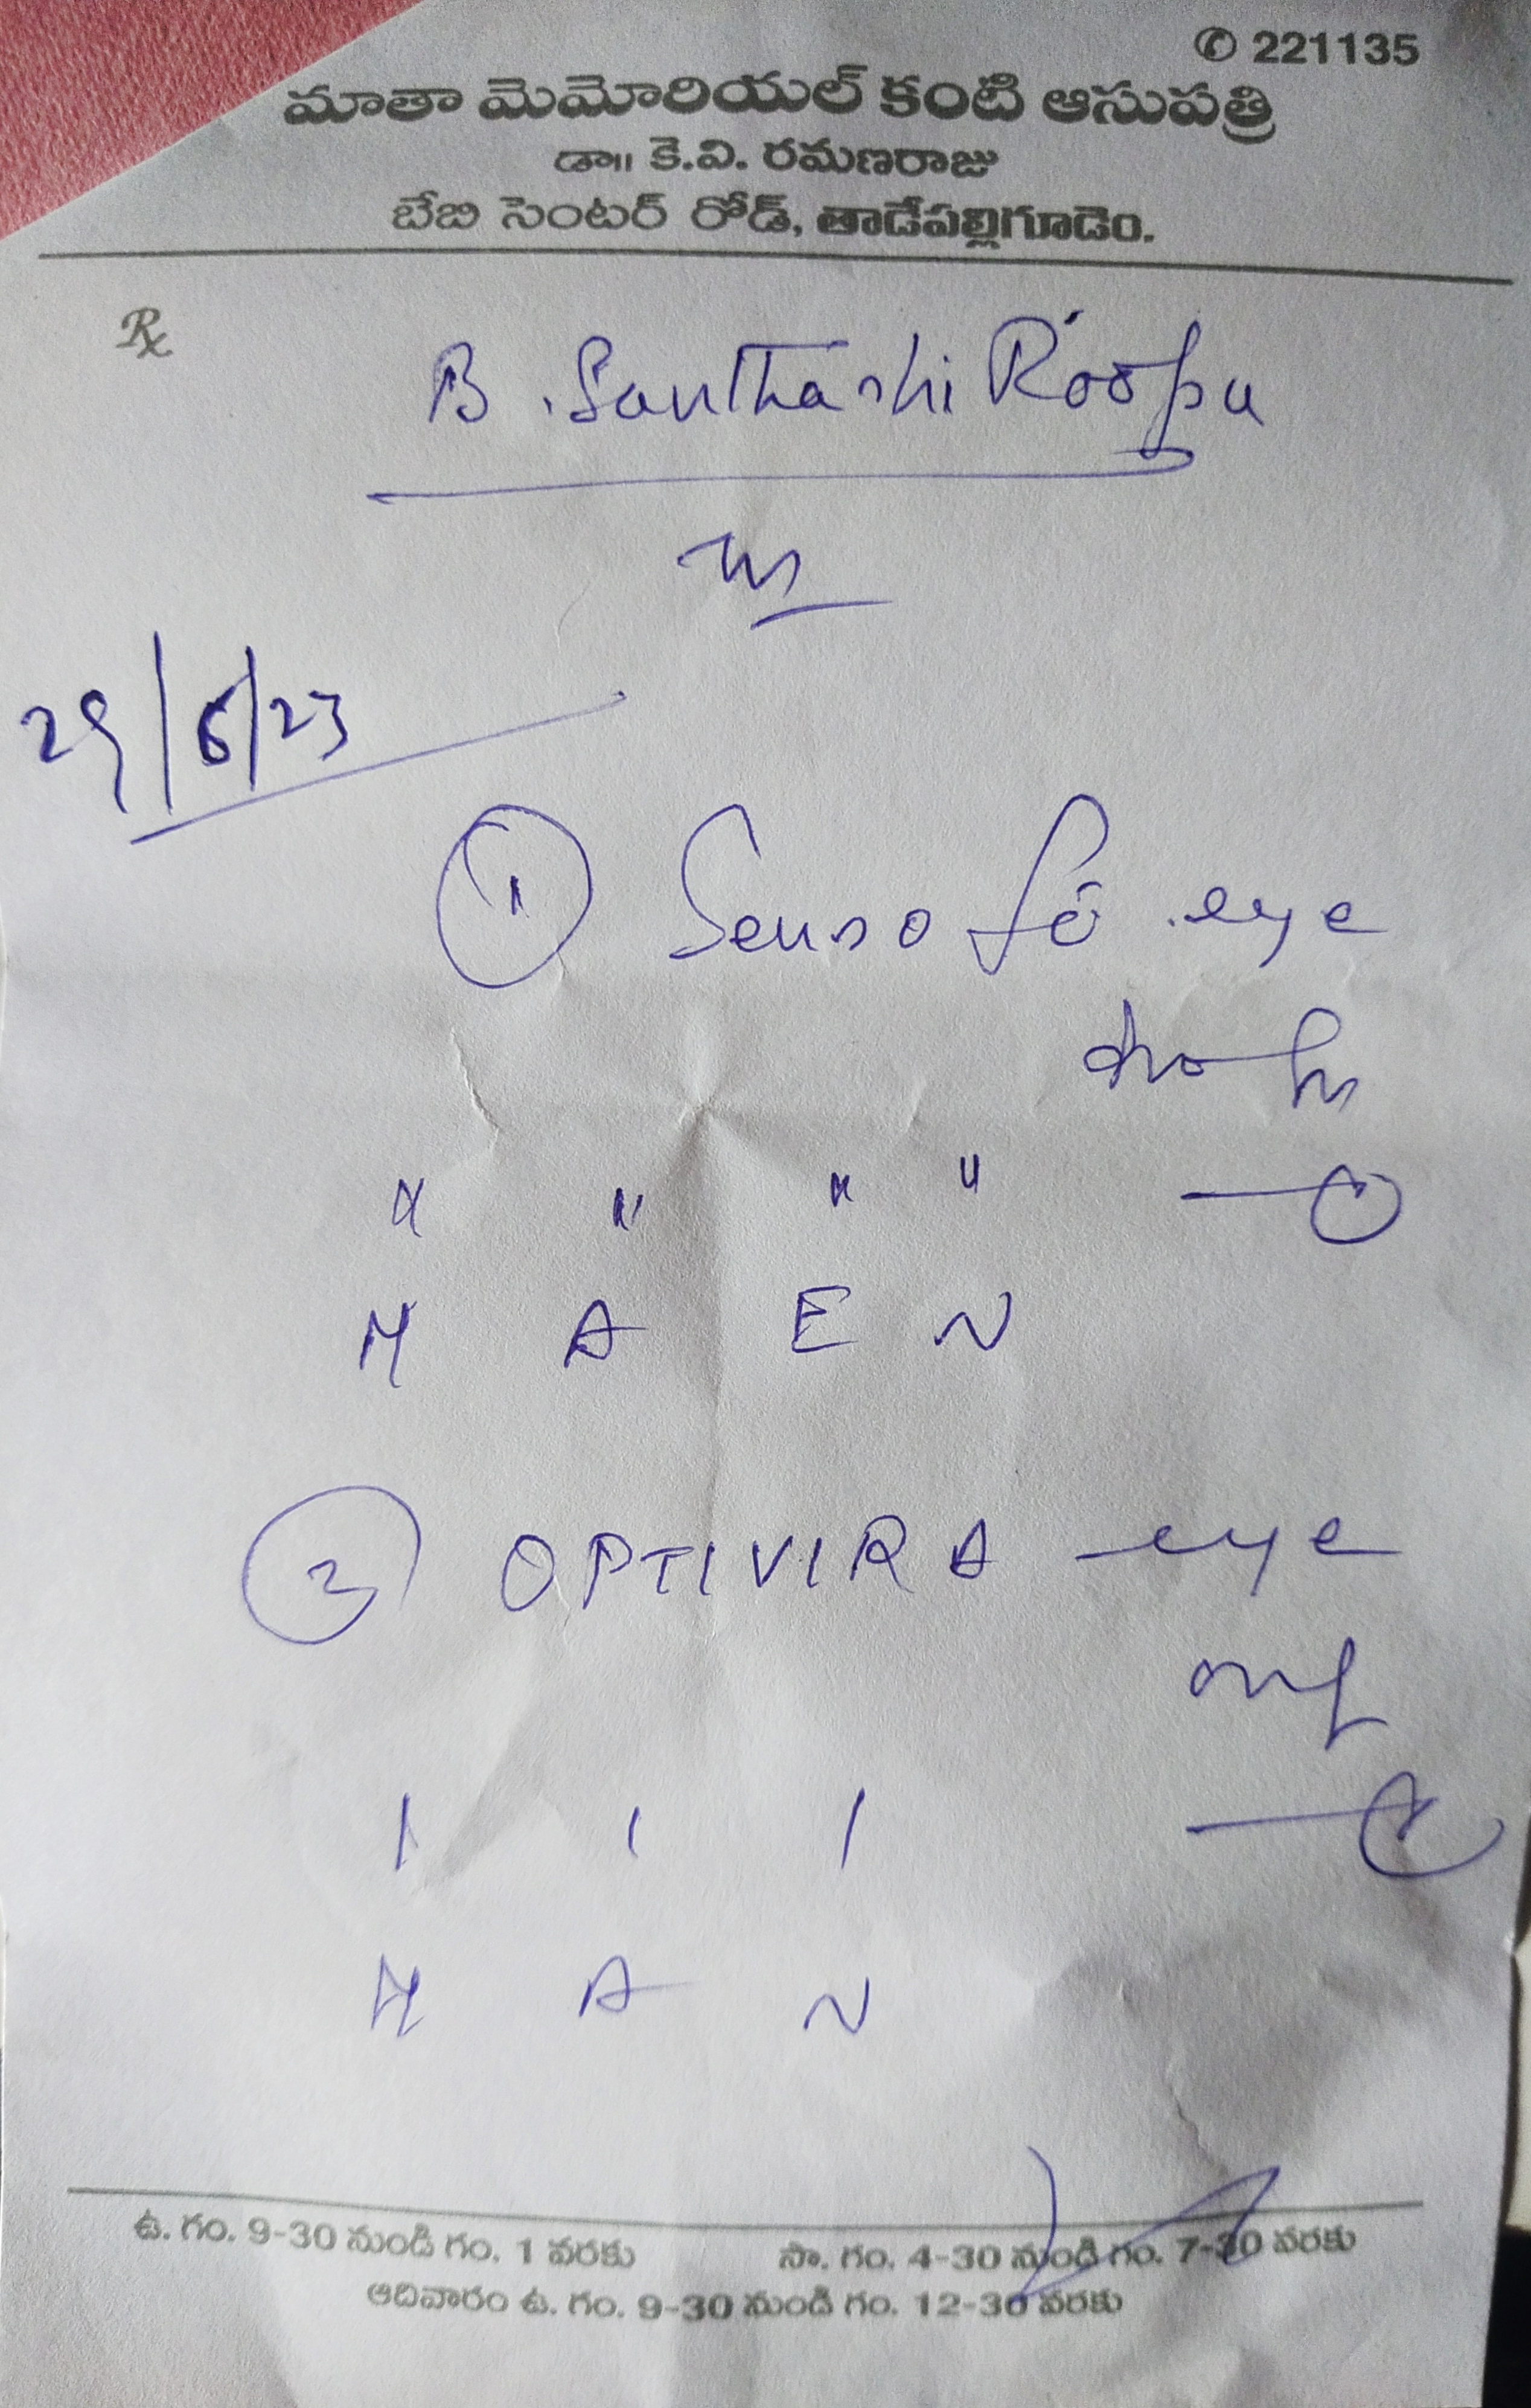 ✆ 221135
మాతా మెమోరియల్ కంటి ఆసుపత్రి
డా॥ కె.వి. రమణరాజు
బేబి సెంటర్ రోడ్, తాడేపల్లిగూడెం.
Rx
B. Santhashi Roopa
29/6/23
① eye
drops
" " " "
M A E N
② OPTIVIRA eye
ont
1 1 1
M A N
ఉ. గం. 9-30 నుండి గం. 1 వరకు సా. గం. 4-30 నుండి గం. 7-30 వరకు
ఆదివారం ఉ. గం. 9-30 నుండి గం. 12-30 వరకు